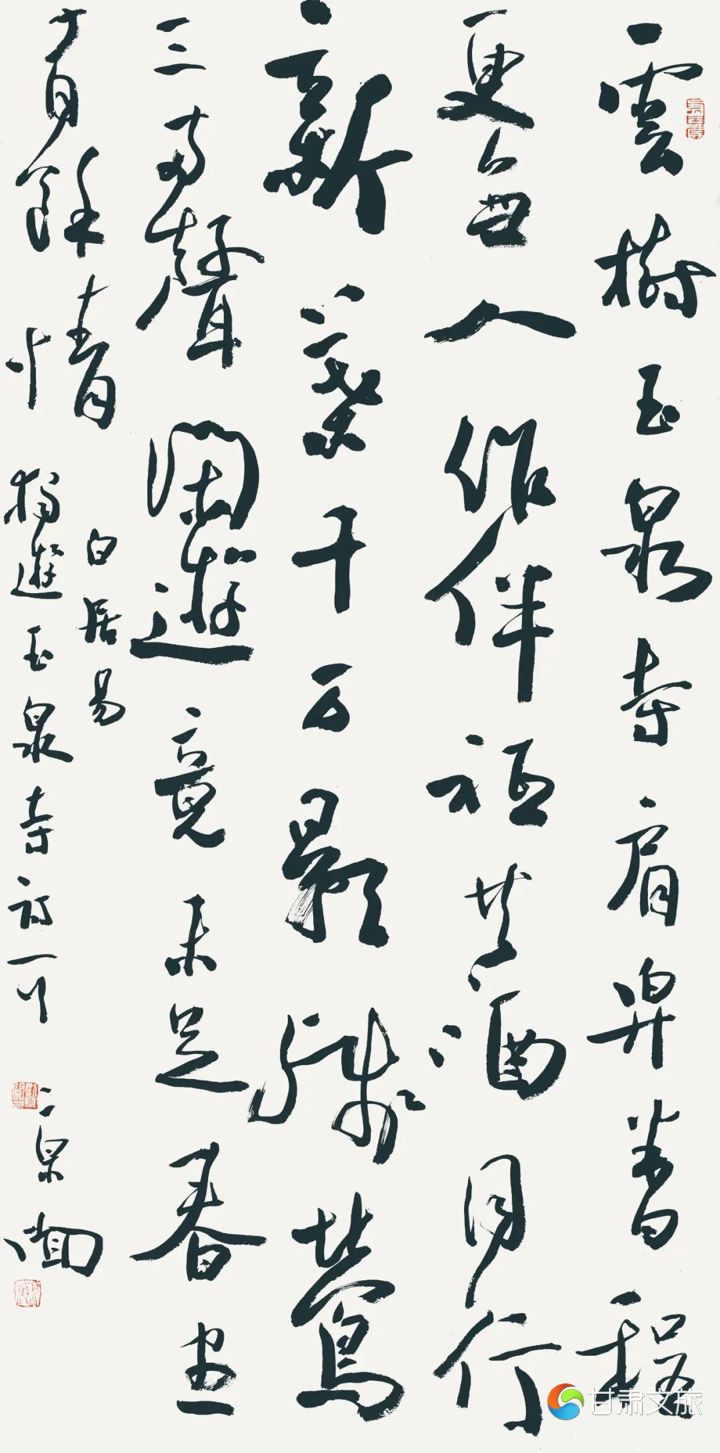 雲樹玉泉寺肩舁半日程
更無人作伴祗共酒同行
新葉千万影殘鶯
三兩聲閑遊竟未足春盡
有餘情
白居易
獨遊玉泉寺詩一首
甘肃文旅